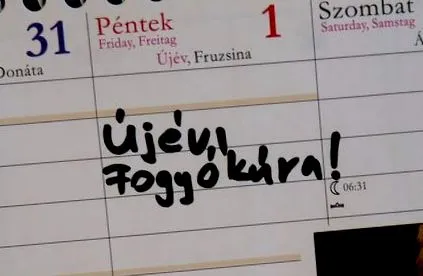 31
Donáta
Péntek 1
Friday, Freitag
Újév, Fruzsina
Szombat
Saturday, Samstag
Újévi
Fogyókúra!
06:31